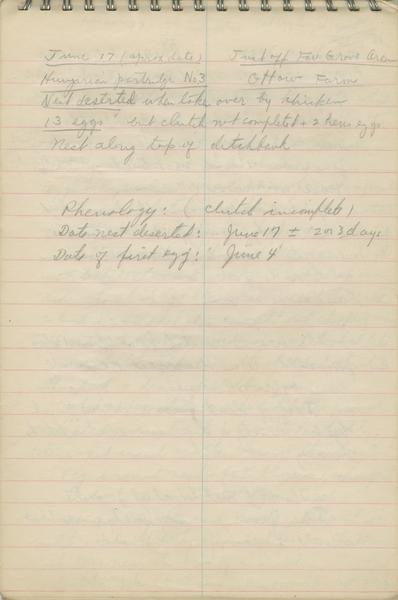 June 17 (approx date) Just off Fav. Grove Area
Hungarian partridge No 3 Ottow Farm
Nest deserted when taken over by chicken
13 eggs but clutch not completed + 2 hens eggs.
Nest along top of ditchbank
Phenology: (clutch incomplete)
Date nest deserted: June 17 ± 2 or 3 days
Date of first egg: June 4